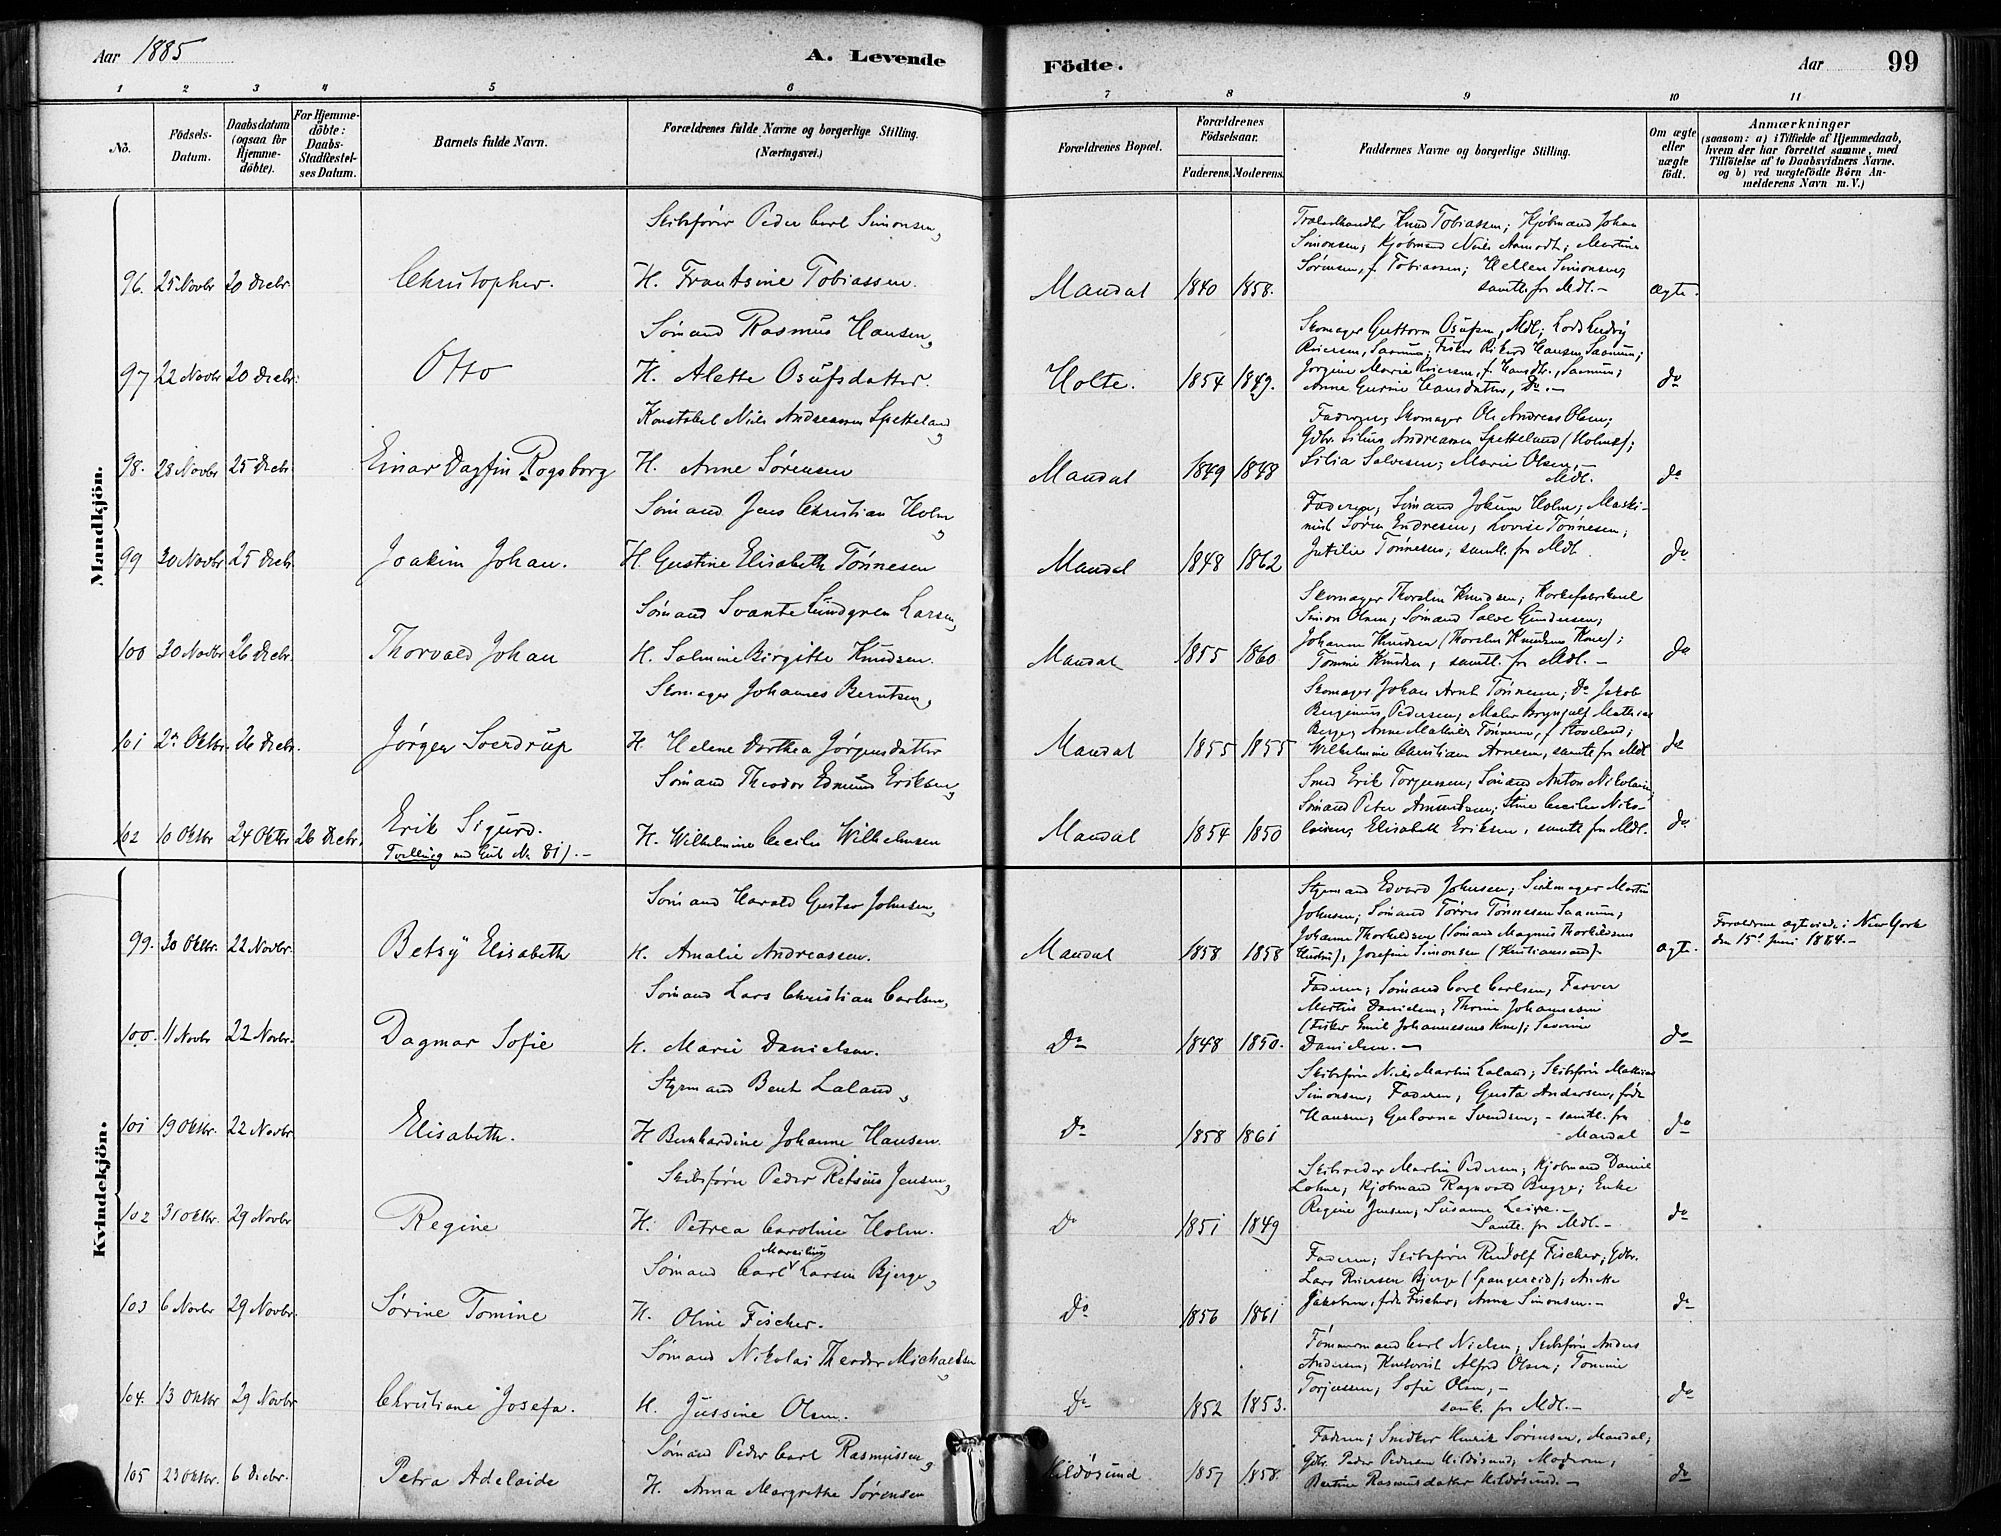 Aar 1885
A. Levende Födte.
Aar 99
1 2 3 4 5 6 7 8 9 10 11
No.
Födsels-Datum.
Daabsdatum (ogsaa for Hjemme-döbte).
For Hjemme-döbte: Daabs-Stadfæstel-ses Datum.
Barnets fulde Navn.
Forældrenes fulde Navne og borgerlige Stilling. (Næringsvei.)
Forældrenes Bopæl.
Forældrenes Födselsaar.
Faderens. Moderens.
Faddernes Navne og borgerlige Stilling.
Om ægte eller uægte födt.
Anmærkninger
(saasom: a) i Tilfælde af Hjemmedaab,
hvem der har forrettet samme, med
Tilföielse af to Daabsvidners Navne.
og b) ved uægtefödte Börn An-
melderens Navn m. V.)
Mandkjön.
Skibsfører Peder Carl Simonsen,
96. 25 Novbr 20 Decbr. Christopher. H. Frantsine Tobiassen. Mandal 1840 1858. ægte.
Trælasthandler Knud Tobiassen; Kjøbmand Johan
Simonsen; Kjøbmand Niels Aamodt; Martine
Sørensen, f. Tobiassen; Hellen Simonsen,
samtl. fra Mdl.-
Sømand Rasmus Hansen,
97 22 Novbr 20 Decbr. Otto H. Alette Osufsdatter. Holte. 1854 1849. do
Skomager Guttorm Osufsen, Mdl; Lods Ludvig
Reiersen, Saanum; Fisker Rikard Hansen Saanum;
Jørgine Marie Reiersen, f. Hansdtr., Saanum;
Anne Gurine Hansdatter, Do.-
Konstabel Niels Andreassen Spetteland,
98. 28 Novbr 25 Decbr Einar Dagfin Rogsborg H. Anne Sørensen Mandal 1849 1848 do
Faderen, Skomager Ole Andreas Olsen;
Gdbr. Silius Andreassen Spetteland (Holme);
Silia Salvesen; Marie Olsen, -
Mdl.
Sømand Jens Christian Holm,
99 30 Novbr 25 Decbr. Joakim Johan. H. Gustine Elisabeth Tønnesen Mandal 1848 1862 do
Faderen, Sømand Jokum Holm; Maski-
nist Søren Endresen; Lovise Tønnesen;
Jutilie Tønnesen; samtl. fra Mdl.
Sømand Svante Lundgren Larsen,
100 30 Novbr 26 Decbr. Thorvald Johan H. Salmine Birgitte Knudsen. Mandal 1855 1860 do
Skomager Thorstein Knudsen; Korkefabrikant
Simon Olsen; Sømand Salve Gundersen;
Johanne Knudsen (Thorstein Knudsens Kone);
Tomine Knudsen, samtl. fra Mdl. -
Skomager Johannes Berntsen,
101 2den Oktbr. 26 Decbr. Jørgen Sverdrup H. Helene Dorthea Jørgensdatter Mandal 1855 1855 do
Skomager Johan Arnt Tønnesen; Do Jakob
Berginius Pedersen, Maler Brynjulf Mathias
Berge; Anne Mathilde Tønnesen, f. Stoveland;
Wilhelmine Christiane Arnesen, samtl. fra Mdl
Sømand Theodor Edmund Eriksen,
102 10 Oktbr 24 Oktbr 26 Decbr. Erik Sigurd. H. Wilhelmine Cecilie Wilhelmsen Mandal 1854 1850 do
Tvilling med Gut No 81). -
Smed Erik Torgersen; Sømand Anton Nikolaisen,
Sømand Peter Amundsen; Stine Cecilie Niko-
laisen, Elisabeth Eriksen, samtl. fra Mdl.
Kvindekjön.
Sømand Harald Gustav Johnsen,
99. 30 Oktbr. 22 Novbr. Betsy Elisabeth H. Amalie Andreassen. Mandal 1858 1858 ægte.
Styrmand Edvard Johnsen; Seilmager Martin
Johnsen; Sømand Tørres Tønnesen Saanum;
Johanne Thorkildsen (Sømand Magnus Thorkildsens
Hustru); Josefine Simonsen (Kristianssand).-
Forældrene ægteviede i New York
den 15de Juni 1884.-
Sømand Lars Christian Carlsen,
100. 11 Novbr 22 Novbr. Dagmar Sofie H. Marie Danielsen. Do 1848 1850. do
Faderen; Sømand Carl Carlsen, Farver
Martin Danielsen; Thrine Johannesen
(Fisker Emil Johannesens Kone); Severine
Danielsen. -
Styrmand Bent Laland,
101 19 Oktbr. 22 Novbr. Elisabeth. H Bernhardine Johanne Hansen. Do 1858 1861 do
Skibsfører Niels Martin Laland; Skibsfører Mathias
Simonsen; Faderen, Gusta Andersen, født
Hansen; Gulovna Svendsen; - samtl. fra
Mandal
Skibsfører Peder Retsius Jensen,
102 31 Oktbr. 29 Novbr Regine H. Petrea Caroline Holm. Do 1851 1849 do
Skibsreder Martin Pedersen; Kjøbmand Daniel
Lohne; Kjøbmand Ragnvald Bugge; Enke
Regine Jensen; Susanne Leire.-
Samtl. fra Mdl.-
Sømand Carl Marselius Larsen Bjerge,
103 6 Novbr 29 Novbr. Sørine Tomine H. Oline Fischer. Do 1856 1861 do
Faderen; Skibsfører Rudolf Fischer; Gdbr.
Lars Reiersen Bjerge (Spangereid); Aneke
Jakobsen, født Fischer; Anna Simonsen.-
Sømand Nikolai Theodor Michaelsen,
104. 13 Oktbr 29 Novbr Christiane Josefa. H. Jussine Olsen. Do 1852 1853. do
Tømmermand Carl Nielsen; Skibsfører Anders
Andersen; Alfred Olsen; Tomine
Torjussen; Sofie Olsen, -
samtl. fra Mdl.-
Sømand Peder Carl Rasmussen,
105 23 Oktbr. 6 Decbr. Petra Adelaide H. Anna Margrethe Sørensen Hildøsund 1857 1858. do
Faderen; Snedker Henrik Sørensen, Mandal;
Gdbr. Peder Pedersen Hildøsund; Moderen;
Bertine Rasmusdatter Hildøsund. -